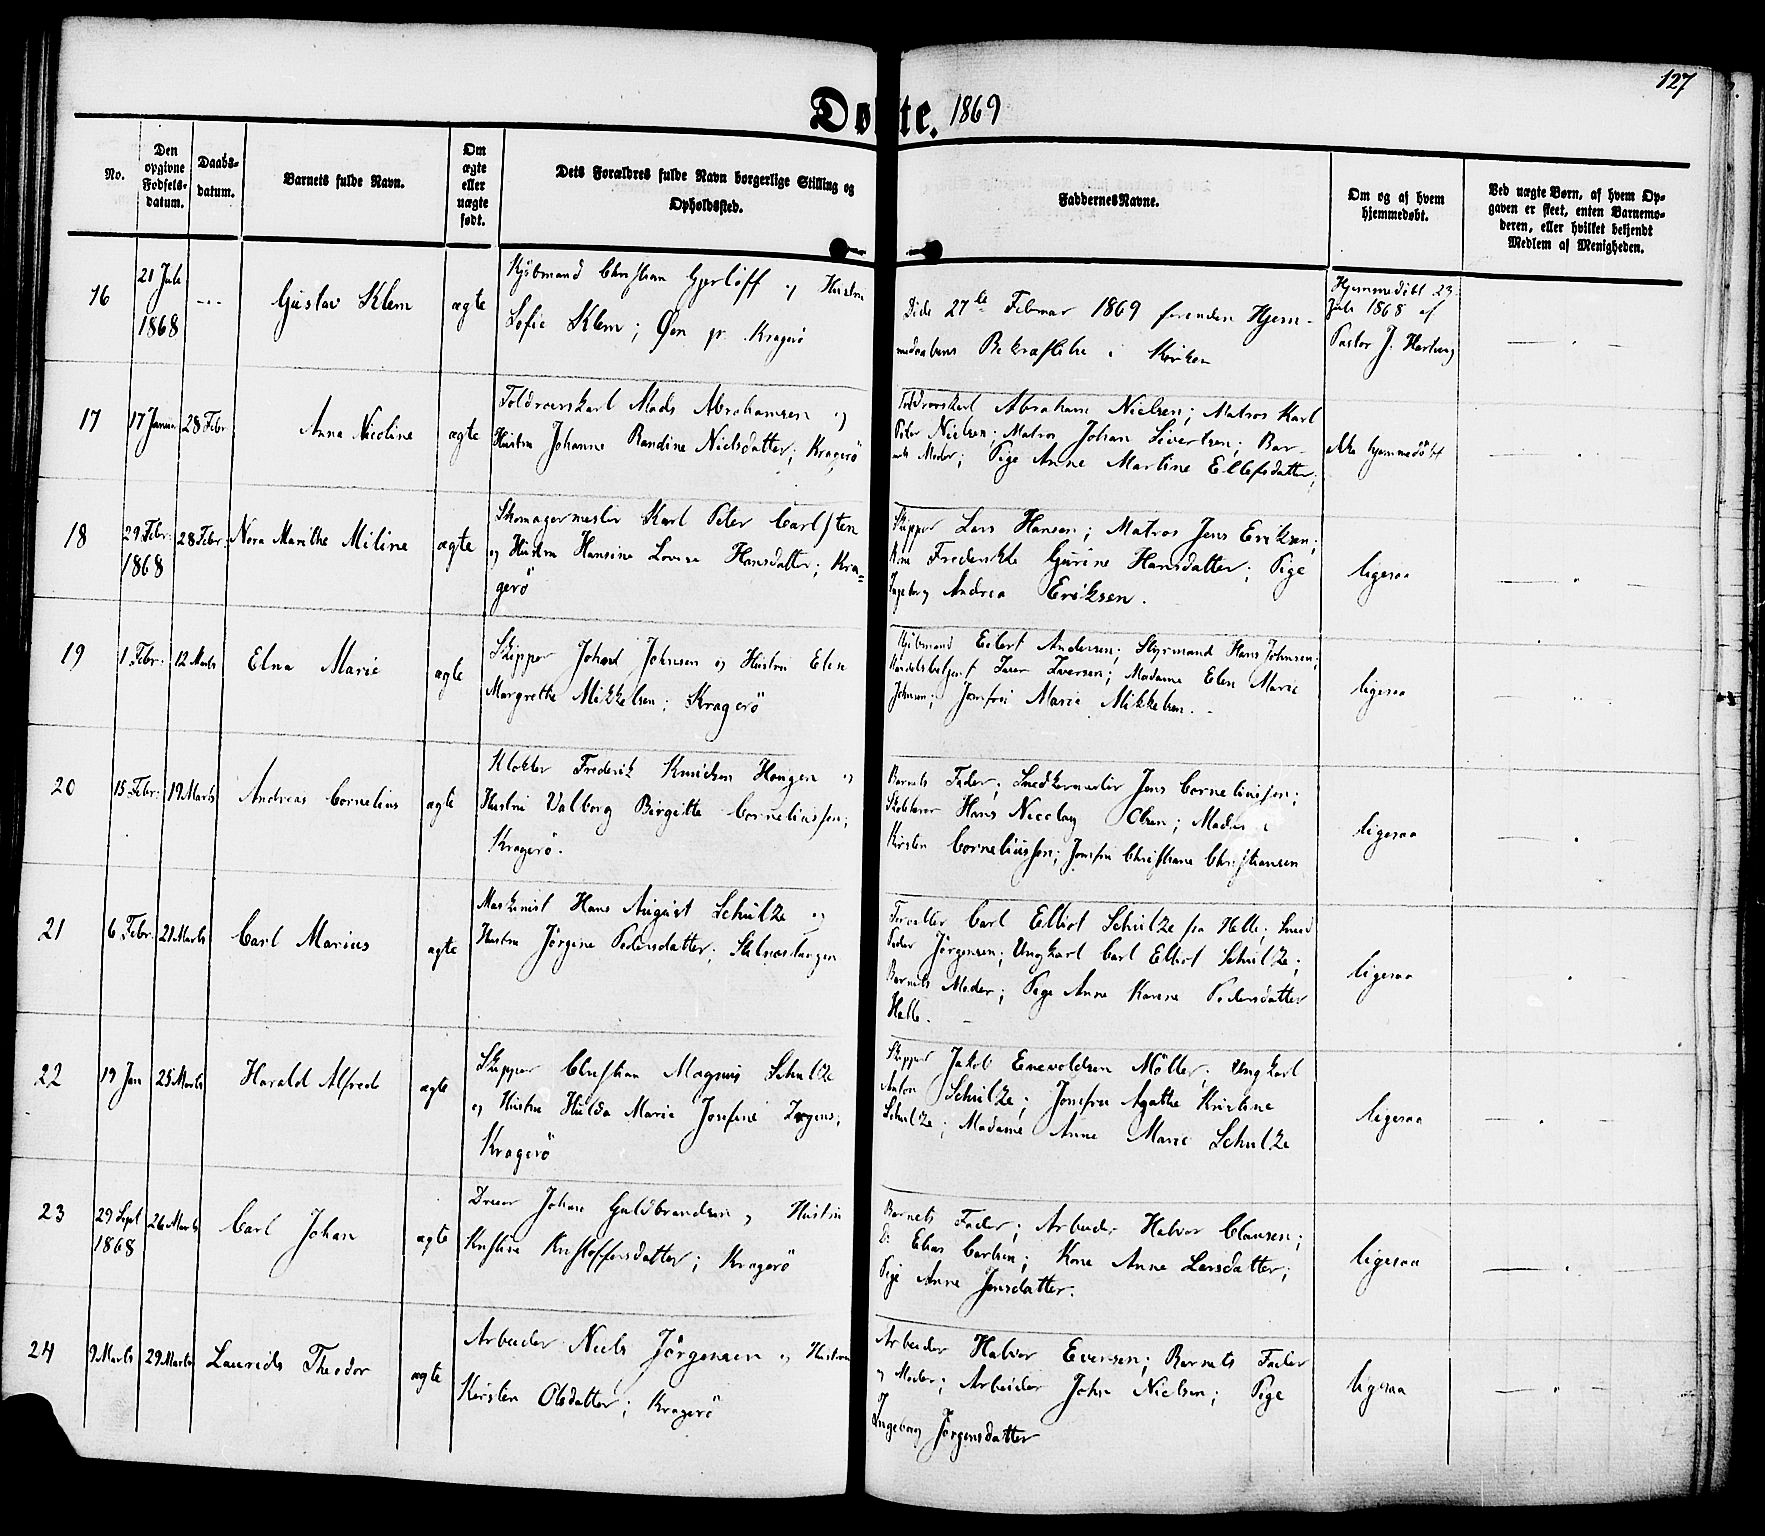 127
Døbte. 1869
No.
Den opgivne Fødsels-datum.
Daabs-datum.
Barnets fulde Navn.
Om ægte eller uægte født.
Dets Forældres fulde Navn borgerlige Stilling og Opholdssted.
Faddernes Navne.
Om og af hvem hjemmedøbt.
Ved uægte Børn, af hvem Opgaven er skeet, enten Barnemoderen, eller hvilket bekjendt Medlem af Menigheden.
16
21 Juli
1868
---
Gustav Klem
ægte
Kjöbmand Christian Gjerløff og Hustru
Sofie Klem; Øen pr. Kragerö
Døde 27de Februar 1869 forinden Hjem-
medaabens Bekræftelse i Kirken
Hjemmedöbt 23
Juli 1868 af
Pastor J. Hartwig
17
17 Januar
28 Febr.
Anna Nicoline
ægte
Toldroerskarl Mads Abrahamsen og
Hustru Johanne Randine Nielsdatter; Kragerö
Toldroerskarl Abraham Nielsen; Matros Karl
Peter Nielsen; Matros Johan Sivertsen; Bar-
nets Moder; Pige Anne Martine Ellefsdatter;
ikke hjemmedöbt
18
29 Febr.
1868
28 Febr.
Nora Marithe Miline
ægte
Skomagermester Karl Peter Carlsten
og Hustru Hansine Lovise Hansdatter; Kra-
gerö
Skipper Lars Hansen; Matros Jens Eriksen;
Kone Frederikke Gurine Hansdatter; Pige
Ingeborg Andrea Eriksen.
ligesaa
19
1 Febr.
12 Marts
Elna Marie
ægte
Skipper Johan Johnsen og Hustru Elen
Margrethe Mikkelsen; Kragerö
Kjöbmand Eilert Andersen; Styrmand Hans Johnsen;
Handelsbetjent Iver Iversen; Madame Elen Marie
Johnsen; Jomfru Marie Mikkelsen.
ligesaa
20
15 Febr.
19 Marts
Andreas Cornelius
ægte
Klokker Frederik Knudsen Haugen og
Hustru Valborg Birgitte Corneliussen;
Kragerö.
Barnets Fader; Snedkermester Jens Corneliussen;
Skolelærer Hans Nicolay Olsen; Madame
Kirsten Corneliussen; Jomfru Christiane Christiansen
ligesaa
21
6 Febr.
21 Marts
Carl Marius
ægte
Maskinist Hans August Schulze og
Hustru Jörgine Pedersdatter; Stilnestangen
Forvalter Carl Elliot Schulze fra Helle; Smed
Peder Jörgensen; Ungkarl Carl Elliot Schulze;
Barnets Moder; Pige Anne Karine Pedersdatter
Helle.
ligesaa
22
19 Jan
25 Marts
Harald Alfred
ægte
Skipper Christian Magnus Schulze
og Hustru Hulda Marie Josefine Zrgens;
Kragerö
Skipper Jakob Enevoldsen Möller; Ungkarl
Anton Schulze; Jomfru Agathe Kristine
Schulze; Madame Anne Marie Schulze
ligesaa
23
29 Sept
1868
26 Marts
Carl Johan
ægte
Dreier Johan Guldbrandsen og Hustru
Kristine Kristoffersdatter; Kragerö
Barnets Fader; Arbeider Halvor Clausen;
Do Elias Carlsen; Kone Anne Larsdatter;
Pige Anne Jensdatter.
ligesaa
24
9 Marts
29 Marts
Laurids Theodor
ægte
Arbeider Niels Jörgensen og Hustru
Kirsten Olsdatter; Kragerö
Arbeider Halvor Eversen; Barnets Fader
og Moder; Arbeider John Nielsen; Pige
Ingeborg Jörgensdatter
ligesaa